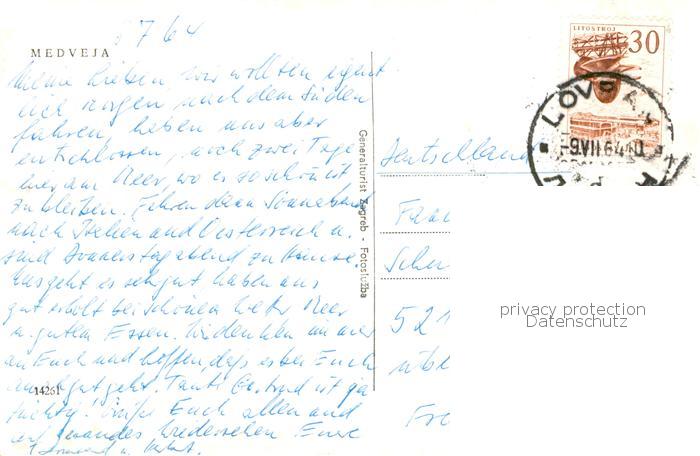 8 7 64
MEDVEJA
Meine Lieben wir wollten eigent
lich morgen nach dem Süden
fahren, haben uns aber
entschlossen, noch zwei Tage
hier am Meer, wo es so schön ist
zu bleiben. Fahren dann Sonnabend
nach Italien und Oesterreich u.
sind Donnerstagabend zu Hause.
Uns geht es sehr gut haben uns
gut erholt bei schönem Wetter Meer
u. gutem Essen. Wir denken immer
an Euch und hoffen, daß es bei Euch
auch gut geht. Tante Gertrud ist ga
tüchtig! Grüße Euch allen und
auf gesundes Wiedersehen Eure
u.
14261
Generalturist Zagreb - Fotoslužba
LITOSTROJ
30
LOV
-9.VII.64
Deutschland
Frau
Schu
521
übe
Fr
privacy protection
Datenschutz